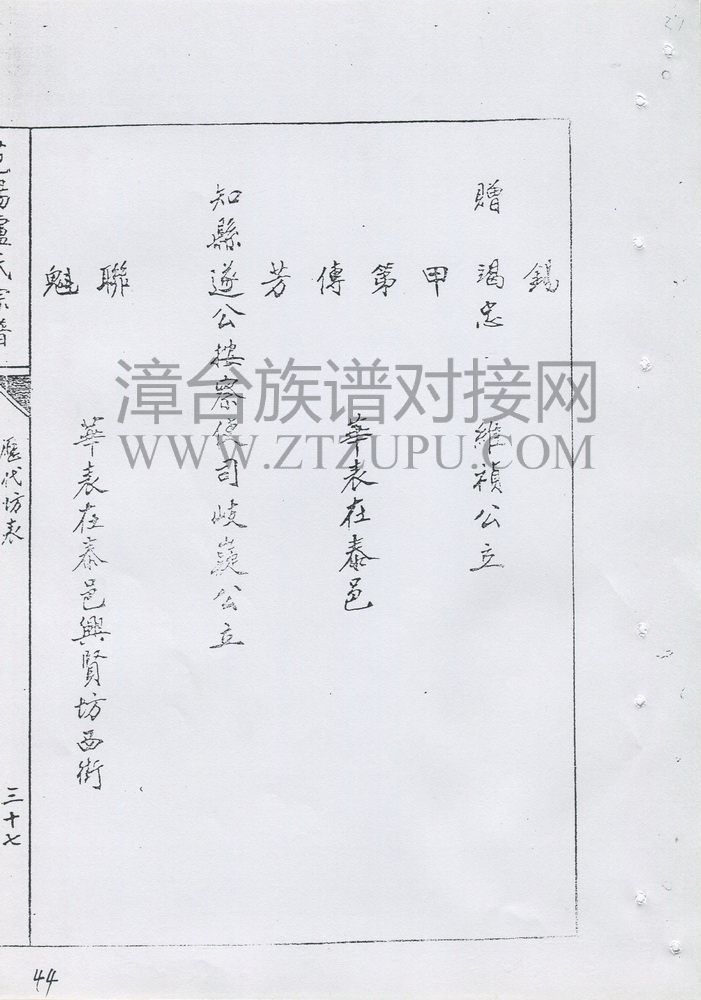 錫
贈竭忠 維禎公立
甲
第
華表在泰邑
傳
芳
知縣遂公按察使司岐嶷公立
聯
華表在泰邑興賢坊西街
魁
范陽盧氏宗譜
歷代坊表
三十七
44
漳台族谱对接网
WWW.ZTZUPU.COM